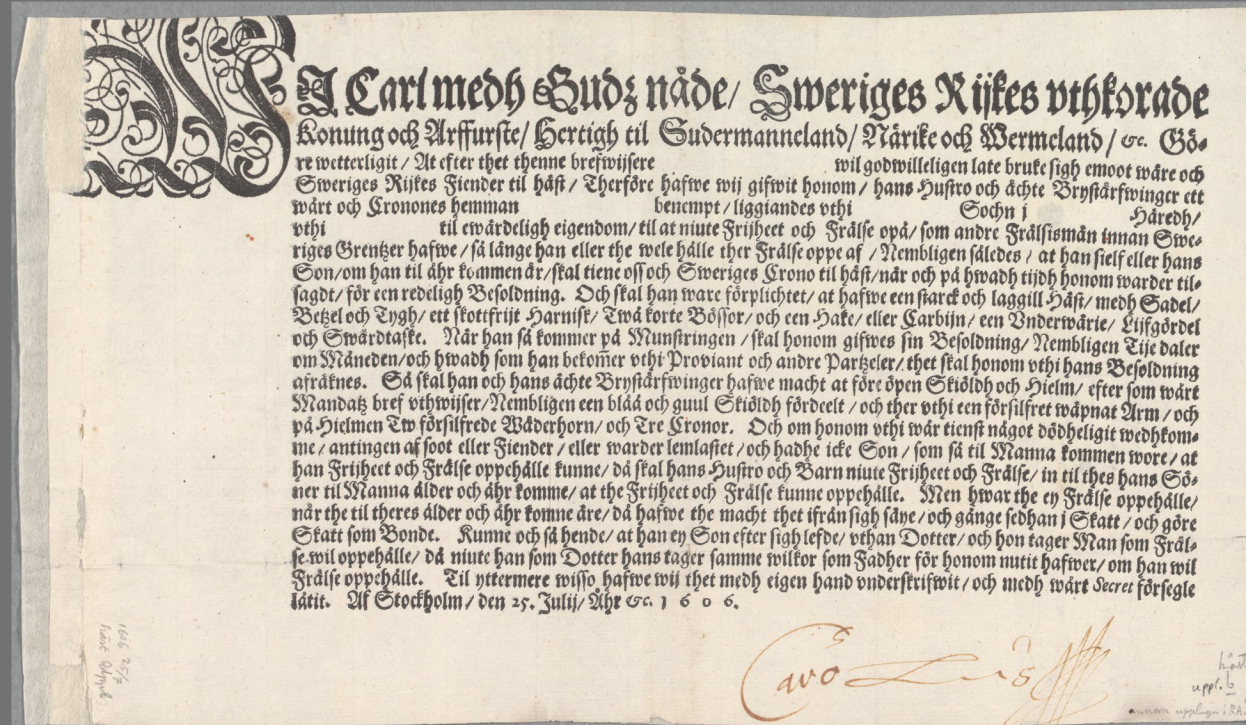 WJ Carl medh Gudz nåde/ Sweriges Rijkes vthkorade
Konung och Arffurste/ Hertigh til Sudermanneland/ Närike och Wermeland/ &c. Gö-
re wetterligit/ At efter thet thenne brefwijsere wil godwilleligen late bruke sigh emoot wåre och
Sweriges Rijkes Fiender til häst/ Therföre hafwe wij gifwit honom/ hans Hustro och ächte Brystärfwinger ett
wårt och Cronones hemman benempt/ liggiandes vthi Sochn j Häredh/
vthi til ewärdeligh eigendom/ til at niute Frijheet och Frälse opå/ som andre Frälsismän innan Swe-
riges Grentzer hafwe/ så länge han eller the wele hålle ther Frälse oppe af/ Nembligen således/ at han sielf eller hans
Son/ om han til åhr kommen är/ skal tiene oss och Sweriges Crono til häst/ når och på hwadh tijdh honom warder til-
sagdt/ för een redeligh Besoldning. Och skal han ware förplichtet/ at hafwe een starck och laggill Häst/ medh Sadel/
Betzel och Tygh/ ett skottfrijt Harnisk/ Twå korte Bössor/ och een Hake/ eller Carbijn/ een Vnderwärie/ Lijfgördel
och Swärdtaske. När han så kommer på Munstringen/ skal honom gifwes sin Besoldning/ Nembligen Tije daler
om Måneden/ och hwadh som han bekom̃er vthi Proviant och andre Partzeler/ thet skal honom vthi hans Besoldning
afräknes. Så skal han och hans ächte Brystärfwinger hafwe macht at före öpen Skiöldh och Hielm/ efter som wårt
Mandatz bref vthwijser/ Nembligen een blåå och guul Skiöldh fördeelt/ och ther vthi een försilfret wäpnat Arm/ och
på Hielmen Tw försilfrede Wäderhorn/ och Tre Cronor. Och om honom vthi wår tienst något dödheligit wedhkom-
me/ antingen af soot eller Fiender/ eller warder lemlastet/ och hadhe icke Son/ som så til Manna kommen wore/ at
han Frijheet och Frälse oppehålle kunne/ då skal hans Hustro och Barn niute Frijheet och Frälse/ in til thes hans Sö-
ner til Manna ålder och åhr komme/ at the Frijheet och Frälse kunne oppehålle. Men hwar the ey Frälse oppehålle/
når the til theres ålder och åhr komne äre/ då hafwe the macht thet ifrån sigh säye/ och gånge sedhan j Skatt/ och göre
Skatt som Bonde. Kunne och så hende/ at han ey Son efter sigh lefde/ vthan Dotter/ och hon tager Man som Fräl-
se wil oppehålle/ då niute han som Dotter hans tager samme wilkor som Fadher för honom nutit hafwer/ om han wil
Frälse oppehålle. Til yttermere wisso hafwe wij thet medh eigen hand vnderskrifwit/ och medh wårt Secret försegle
låtit. Af Stockholm/ den 25. Julij/ Åhr &c. 1 6 0 6.
Carolus
1606 25/7
häst
uppl. b
annan upplaga i RA.